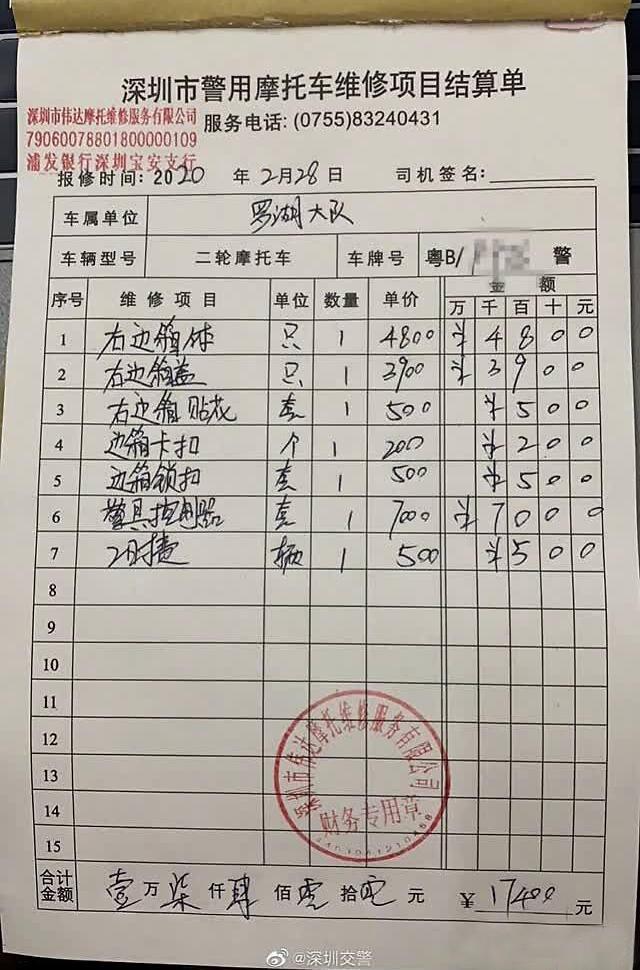 深圳市警用摩托车维修项目结算单
深圳市伟达摩托维修服务有限公司
79060078801800000109
浦发银行深圳宝安支行
服务电话: (0755)83240431
报修时间: 2020 年 2月28日 司机签名:
车属单位 罗湖大队
车辆型号 二轮摩托车 车牌号 粤B/ 警
序号 维修项目 单位 数量 单价 金额
万 千 百 十 元
1 右边箱体 只 1 4800 ¥ 4 8 0 0
2 右边箱盖 只 1 3900 ¥ 3 9 0 0
3 右边箱贴花 套 1 500 ¥ 5 0 0
4 边箱卡扣 个 1 200 ¥ 2 0 0
5 边箱锁扣 套 1 500 ¥ 5 0 0
6 警具控制器 套 1 7000 ¥ 7 0 0 0
7 辆 1 500 ¥ 5 0 0
8
9
10
11
12
13
14
15
深圳市伟达摩托维修服务有限公司
财务专用章
合计金额 壹万柒仟肆佰零拾零元 ¥ 17400 元
@深圳交警